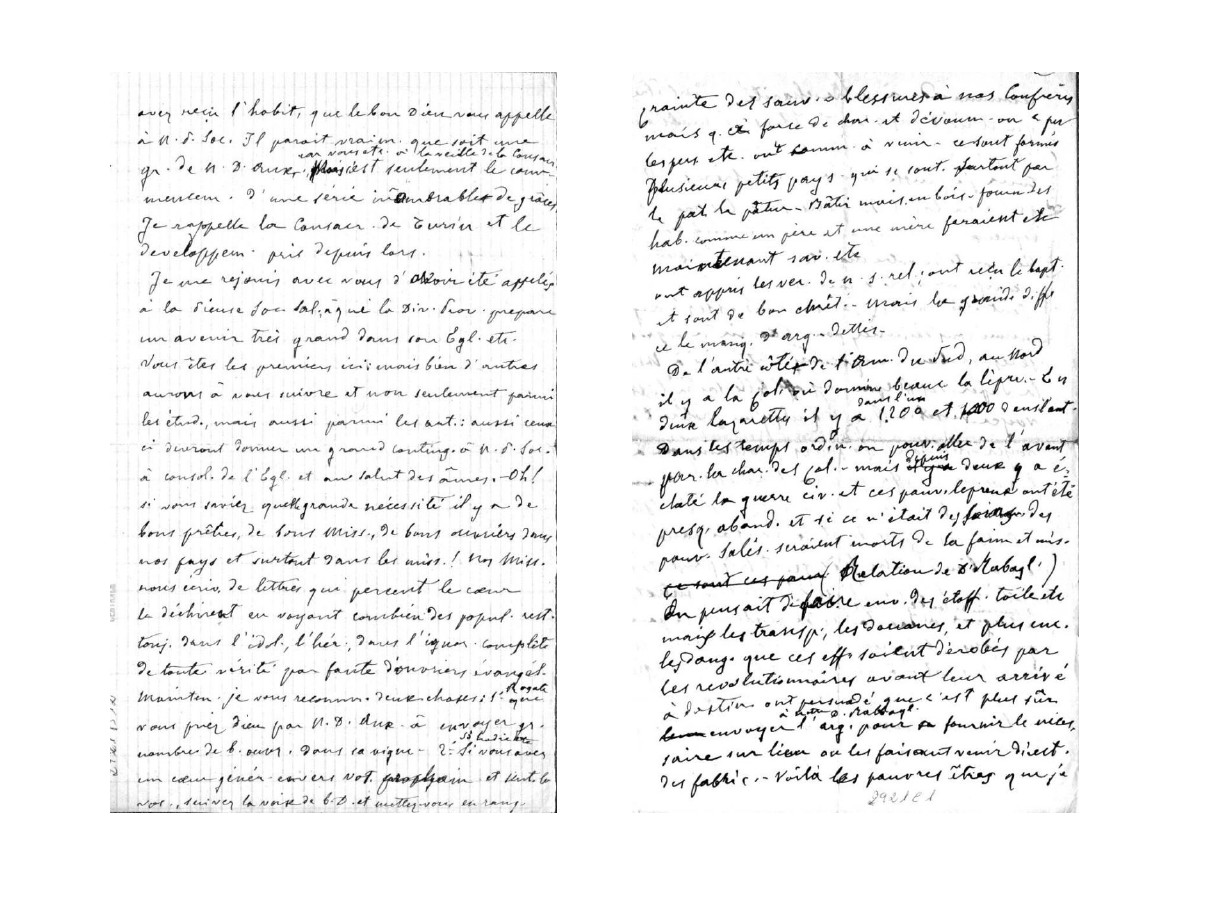 avez reçu l'habit, que le bon Dieu vous appelle
à N. S. Soc. Il parait vraim. que soit une
car vous ets. à la veille de la Consacr.
gr. de N. D. Aux. est seulement le com-
mencem. d'une série de grâces
Je rappelle la Consacr. de Turin et le
developpem. pris depuis lors.
Je me rejouis avec vous d'avoir été appelés
à la Pieuse Soc. Sal. à qui la Div. Prov. prepare
un avenir très grand dans son Egl. etc.
Vous êtes les premiers ici: mais bien d'autres
aurons à vous suivre et non seulement parmi
les étud., mais aussi parmi les art.: aussi ceux
ci devront donner un grand conting. à N. S. Soc.
à consol. de l'Egl. et au salut des âmes. - Oh!
si vous saviez quelle grande nécessité il y a de
bons prêtres, de bons Miss., de bons ouvriers dans
nos pays et surtout dans les miss.! Nos Miss.
nous écriv. de lettres qui percent le cœur
le déchirent en voyant combien des popul. rest.
touj. dans l'idol., l'hér., dans l'ignor. complète
de toute vérité par faute d'ouvriers évangél.
Mainten. je vous recomm. deux choses: 1°
Rogate
vous priez Dieu par N. D. Aux. à envoyer gr.
nombre de b. ouvr. dans sa vigne - 2° Si vous avez
un cœur génér. envers vot. et sent. la
voc., suivez la voix de b. D. et mettez-vous en rang.
crainte des sauv. blessures à nos Confrères
mais q. à force de char. et dévoum. on a pu
les peu etc. ont comm. à venir - ce sont formés
plusieurs petits pays qui se sont partout par
Bâtir mais. en bois - fourn. des
hab. comme un père et une mère feraient etc
maintenant sav. etc
ont appris les ver. de n. s. rel.; ont reçu le bapt.
et sont de bon chrét. - Mais la grande diffi
ce le manq. d'arg. - dettes -
De l'autre côté de l'Am. du Sud, au Nord
il y a la Col. où domine beauc. la lèpre. - En
dans l'un
deux lazarettes il y a 1200 et dans l'aut.
Dans les temps ordin. on pouv. aller de l'avant
depuis
par la char. des Col. - mais deux y a é-
claté la guerre civ. et ces pauv. lepreux ont été
presq. aband. et si ce n'était des
pauv. Salés. seraient morts de la faim et mis.
ce sont ces pauv. Relation de D. Rabagl.)
On pensait de faire env. des étoff. toile etc
mais les transp., les douanes, et plus enc.
les dang. que ces eff. soient dérobés par
les revolutionnaires avant leur arrivé
à destin. ont persuadé que c'est plus sûr
à D. Rabagl.
envoyer l'arg. pour fournir le néces-
saire sur lieu ou les faisant venir direct.
des fabric. - Voilà les pauvres êtres que je
2921E1